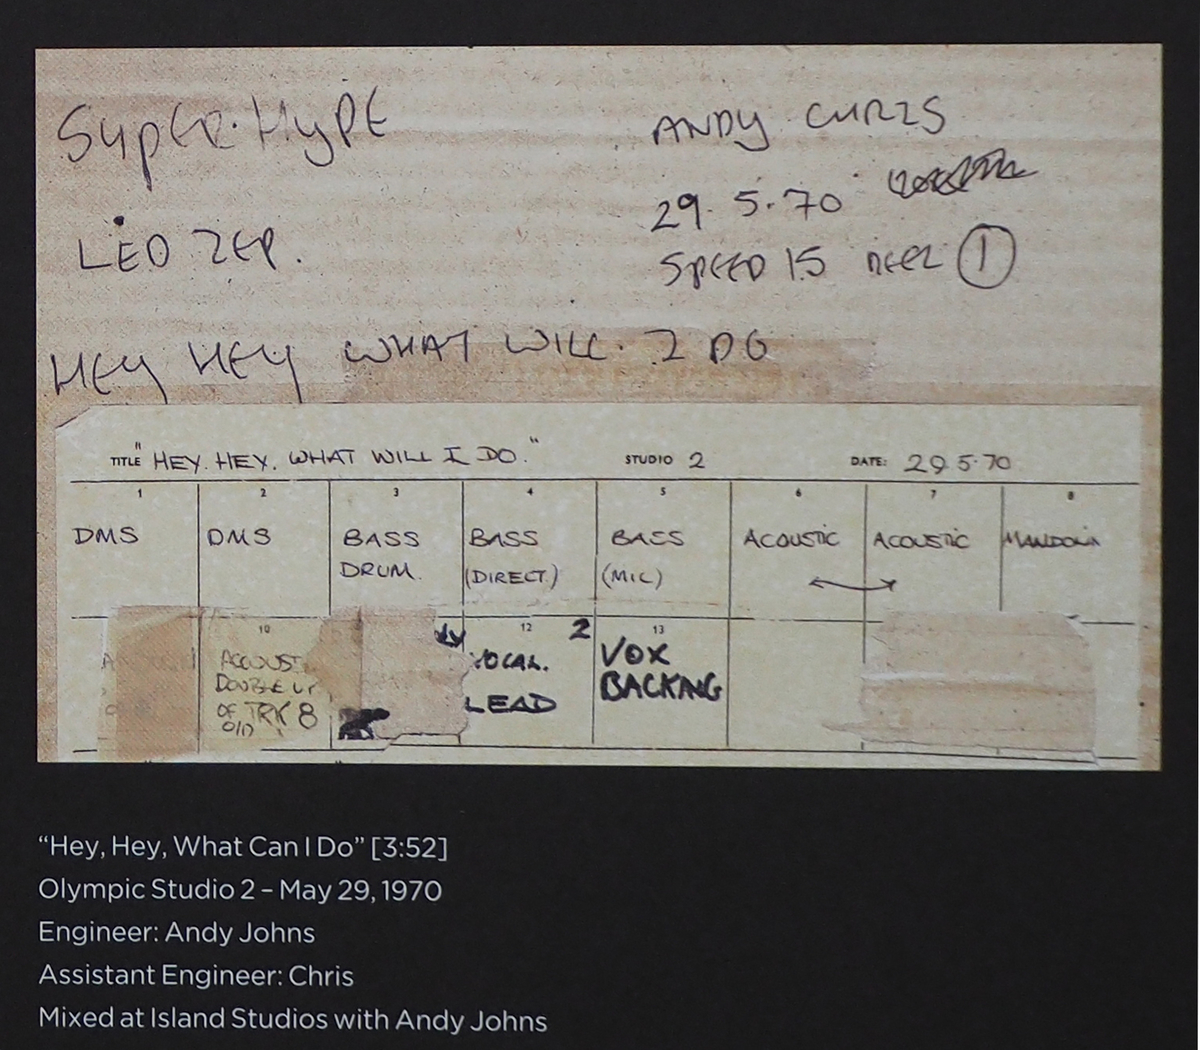 SUPER·HYPE
ANDY CHRIS
29.5.70
LED ZEP.
SPEED 15 REEL 1
HEY HEY WHAT WILL. I DO
TITLE "HEY. HEY. WHAT WILL I DO." STUDIO 2 DATE: 29.5.70
1 2 3 4 5 6 7 8
DMS DMS BASS DRUM. BASS (DIRECT.) BASS (MIC) ACOUSTIC ACOUSTIC MANDOLIN
10 12 2 13
ACCOUST DOUBLE UP OF TRK 8 VOCAL. LEAD VOX BACKING
“Hey, Hey, What Can I Do” [3:52]
Olympic Studio 2 – May 29, 1970
Engineer: Andy Johns
Assistant Engineer: Chris
Mixed at Island Studios with Andy Johns